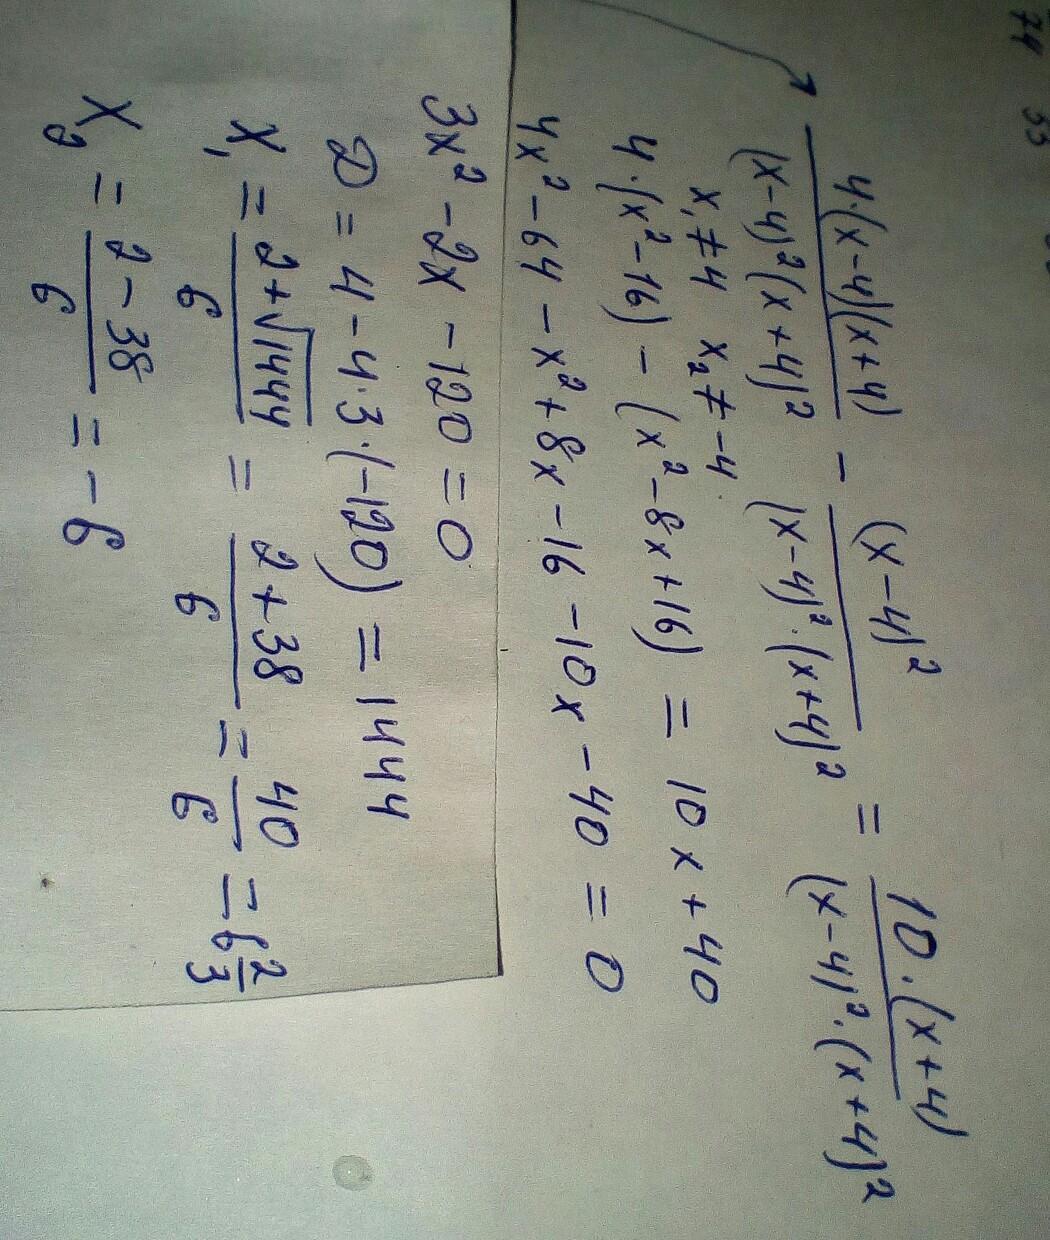 74 53
4·(x-4)(x+4)/(x-4)²(x+4)² - (x-4)²/(x-4)²·(x+4)² = 10·(x+4)/(x-4)²·(x+4)²
x₁≠4 x₂≠-4
4·(x²-16) - (x²-8x+16) = 10x+40
4x²-64-x²+8x-16-10x-40=0
3x²-2x-120=0
D=4-4·3·(-120)=1444
x₁ = 2+√1444/6 = 2+38/6 = 40/6 = 6 2/3
x₂ = 2-38/6 = -6